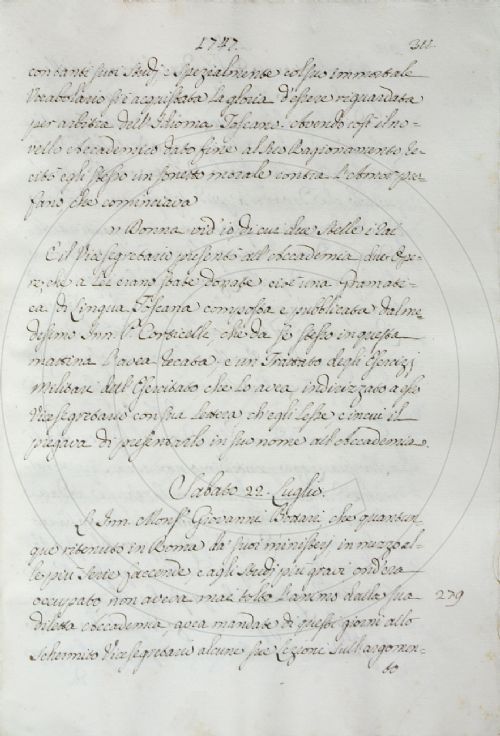 1747.
311.
con tanti suoi Studj e Spezialmente col suo immortale
Vocabolario si è acquistata la gloria d'essere riguardata
per arbitra dell'Idioma Toscano. Avendo così il no-
vello Accademico dato fine al suo Ragionamento re-
citò egli stesso un sonetto morale contra l'Amor pro-
fano che cominciava
Donna, vid'io di cui due Stelle i rai
E il Vicesegretario presentò all'Accademia due Ope-
re, che a Lei erano state donate cioè una Gramati-
ca di Lingua Toscana composta e pubblicata dal me-
desimo Inn. P. Corticelli, che da se stesso in questa
mattina l'avea recata, e un Trattato degli Esercizj
Militari dell'Esercitato che lo avea indirizzato a esso
Vicesegretario con sua Lettera ch'egli lesse e in cui il
pregava di presentarlo in suo nome all'Accademia.
Sabato 22. Luglio.
L'Inn. Mons.r Giovanni Bottari, che quantun-
que ritenuto in Roma da' suoi ministerj in mezzo al-
le più serie faccende e agli Studj più gravi ond'era
occupato non aveva mai tolto l'animo dalla sua
279
diletta Accademia, avea mandate di questi giorni allo
Schermito Vicesegretario alcune sue Lezioni sull'argomen-
to